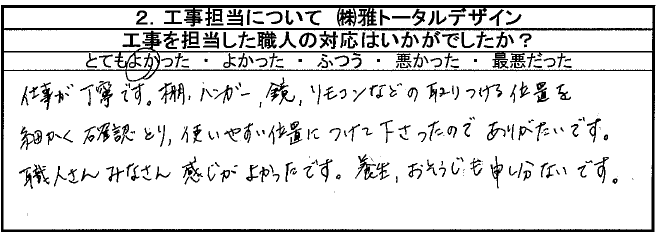 2．工事担当について　㈱雅トータルデザイン
工事を担当した職人の対応はいかがでしたか？
とてもよかった ・ よかった ・ ふつう ・ 悪かった ・ 最悪だった
仕事が丁寧です。棚、ハンガー、鏡、リモコンなどの取りつける位置を
細かく確認とり、使いやすい位置につけて下さったのでありがたいです。
職人さんみなさん感じがよかったです。養生、おそうじも申し分ないです。